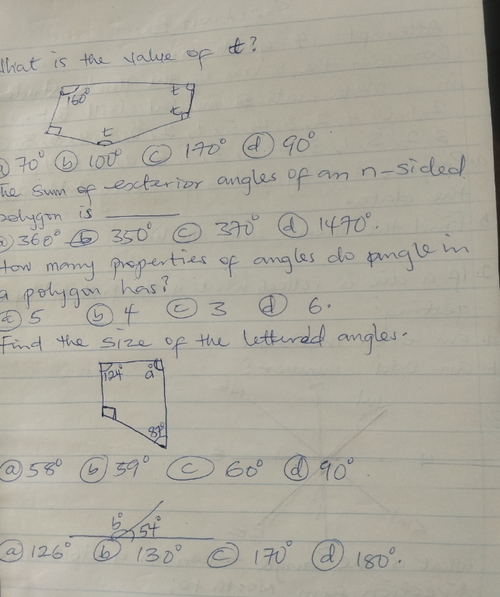 What is the value of t?
160° t
t
t
a 70° b 100° c 170° d 90°
The sum of exterior angles of an n-sided
polygon is ______
a 360° b 350° c 370° d 1470°.
How many properties of angles do angle in
a polygon has?
a 5 b 4 c 3 d 6.
Find the size of the lettured angles.
124° a°
87°
a 58° b 59° c 60° d 90°
b° 54°
a 126° b 130° c 170° d 180°.